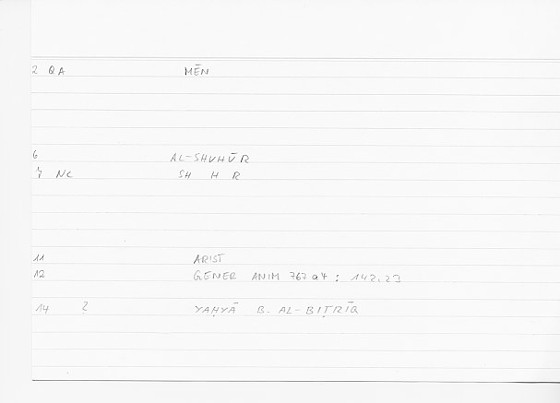 2 QA MĒN
6 AL-SHUHŪR
7 NC SH H R
11 ARIST
12 GENER ANIM 767a4 : 142.23
14 2 YAḤYĀ B. AL-BIṬRĪQ